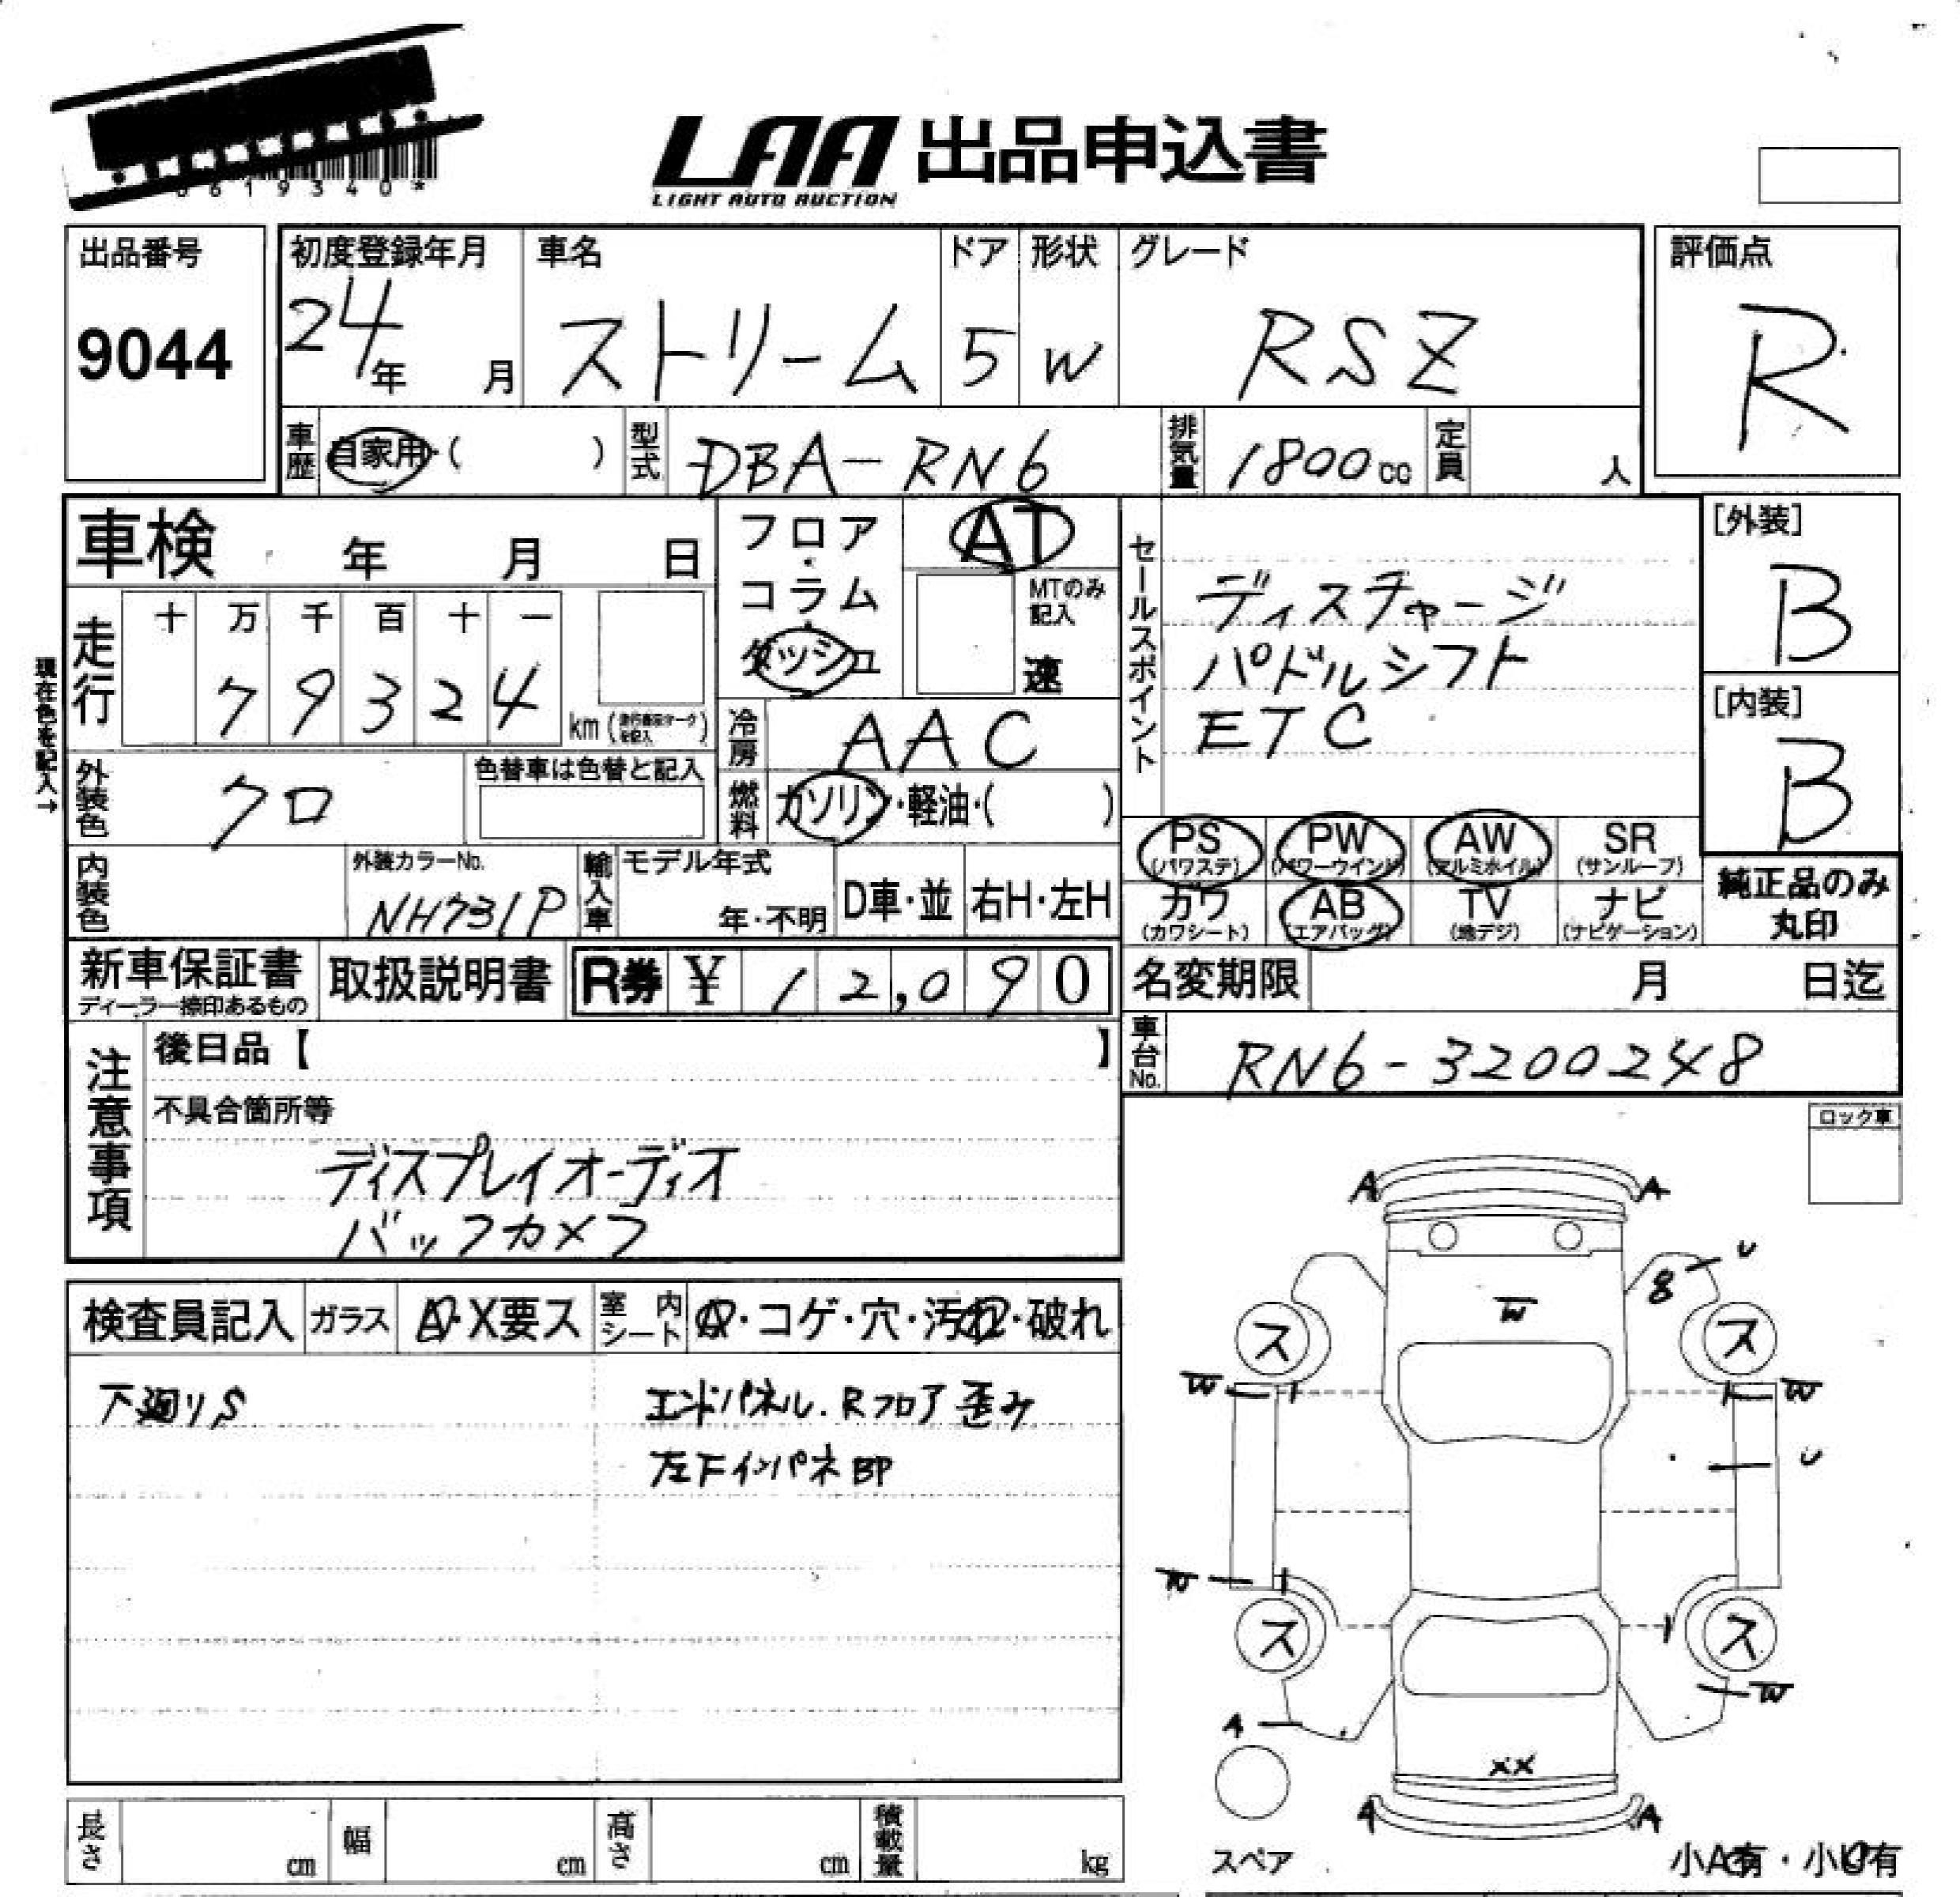 0619340*
LAA 出品申込書
LIGHT AUTO AUCTION
出品番号
9044
初度登録年月
24年 月
車名
ストリーム
ドア
5
形状
W
グレード
RSZ
評価点
R
車歴 自家用・( )
型式 DBA-RN6
排気量 1800cc
定員 人
車検 年 月 日
走行
十 万 千 百 十 一
7 9 3 2 4
km(走行表示マークを記入)
現在色を記入→
外装色 クロ
色替車は色替と記入
内装色
外装カラーNo.
NH731P
輸入車
モデル年式
年・不明
D車・並
右H・左H
フロア
・
コラム
・
ダッシュ
AT
MTのみ記入
速
冷房 AAC
燃料 ガソリン・軽油・( )
セールスポイント
ディスチャージ
パドルシフト
ETC
[外装]
B
[内装]
B
PS (パワステ)
PW (パワーウインド)
AW (アルミホイル)
SR (サンルーフ)
カワ (カワシート)
AB (エアバッグ)
TV (地デジ)
ナビ (ナビゲーション)
純正品のみ
丸印
新車保証書
ディーラー捺印あるもの
取扱説明書
R券 ¥ 12,090
名変期限 月 日迄
車台No. RN6-3200248
注意事項
後日品【 】
不具合箇所等
ディスプレイオーディオ
バックカメラ
ロック車
検査員記入
ガラス
A・X要ス
室内シート
・コゲ・穴・汚れ・破れ
下廻りS
エンドパネル.Rフロア歪み
左Fインパネ部
A A
U
8
W
ス ス
W W
U
W
ス ス
W
A
XX
A A
スペア
小A有・小U有
長さ cm
幅 cm
高さ cm
積載量 kg